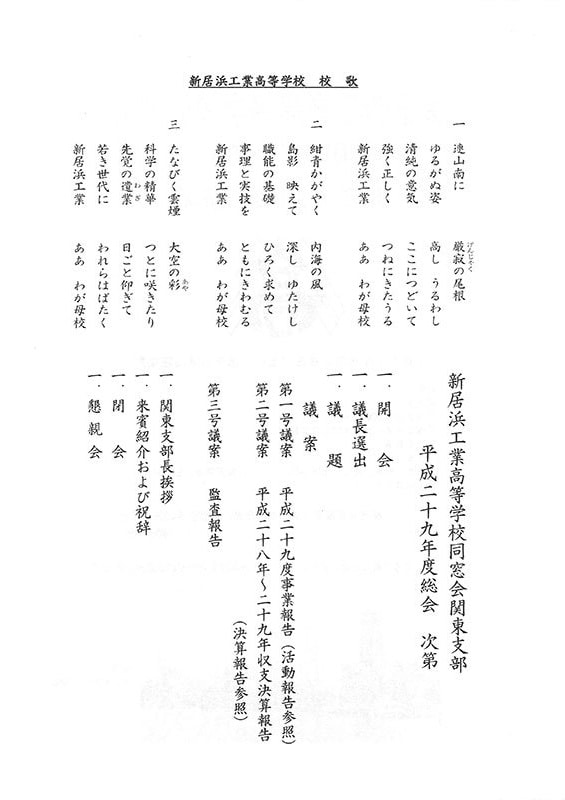 新居浜工業高等学校 校歌
一 連山南に 厳寂の尾根
げんじゃく
ゆるがぬ姿 高し うるわし
清純の意気 ここにつどいて
強く正しく つねにきたうる
新居浜工業 ああ わが母校
二 紺青かがやく 内海の風
島影 映えて 深し ゆたけし
職能の基礎 ひろく求めて
事理と実技を ともにきわむる
新居浜工業 ああ わが母校
三 たなびく雲煙 大空の彩
あや
科学の精華 つとに咲きたり
先覚の遺業 日ごと仰ぎて
わざ
若き世代に われらはばたく
新居浜工業 ああ わが母校
新居浜工業高等学校同窓会関東支部
平成二十九年度総会 次第
一．開会
一．議長選出
一．議題
議案
第一号議案 平成二十九度事業報告（活動報告参照）
第二号議案 平成二十八年～二十九年収支決算報告
（決算報告参照）
第三号議案 監査報告
一．関東支部長挨拶
一．来賓紹介および祝辞
一．閉会
一．懇親会